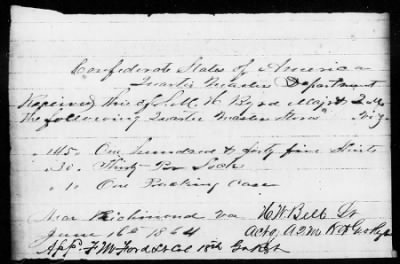 Confederate States of America
Quarter Master Department
Received this of S. M. H. Byrd Major & QM
the following Quarter Master Stores Viz
145 One hundred & forty five Shirts
30 Thirty Pr Socks
1 One Packing Case
Near Richmond Va H. W. Bell Lt
June 16th 1864 Actg A2M
App. F. M. Ford Lt Col 18th Ga Regt